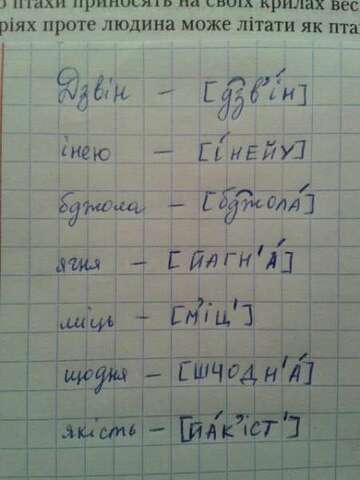 птахи приносять на своїх крилах вес
ріях проте людина може літати як пта
Дзвін – [д͡зв'ін]
інею – [íнейу]
бджола – [бд͡жолá]
ягня – [йагн'á]
міць – [м'іц']
щодня – [шчодн'á]
якість – [йáк'іст']